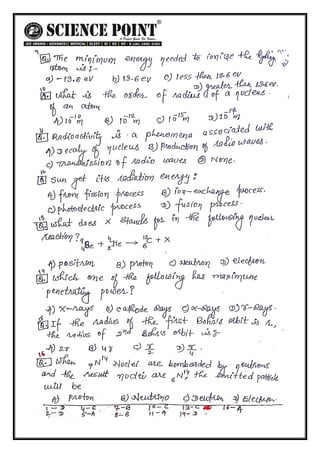 SCIENCE POINT
Q. The minimum energy needed to ionize the hydrogen
atom is :-
a) -13.6 eV b) 13.6 eV c) less than 13.6 eV
D) greater than 13.6 eV.
10
Q. What is the order of radius of a nucleus
of an atom
A) 10⁻¹⁰m B) 10⁻¹²m C) 10⁻¹⁵m D) 10⁻¹⁴m
11
Q. Radioactivity is a phenomena associated with
A) Decay of nucleus B) Production of radio waves.
C) Transmission of radio waves D) None.
Q. Sun get its radiation energy:
A) from fission process B) ion-exchange process.
C) photoelectric process D) fusion process.
Q. What does x stands for in the following nuclear
reaction? ⁹₄Be + ⁴₂He → ¹²₆C + X
A) positron B) proton C) Neutron D) electron
14
Q. Which one of the following has maximum
penetrating power?
A) X-rays B) cathode Rays C) α-Rays D) γ-Rays.
15
Q. If the radius of the first Bohr's orbit is r,
the radius of 2nd Bohr's orbit is :-
A) 2r B) 4r C) r/2 D) r/4.
16
Q. When ₇N¹⁴ Nuclei are bombarded by neutrons
and the result nuclei are ₆N¹⁴, the emitted particle
will be
A) Proton B) Neutrino C) Deutron D) Electron